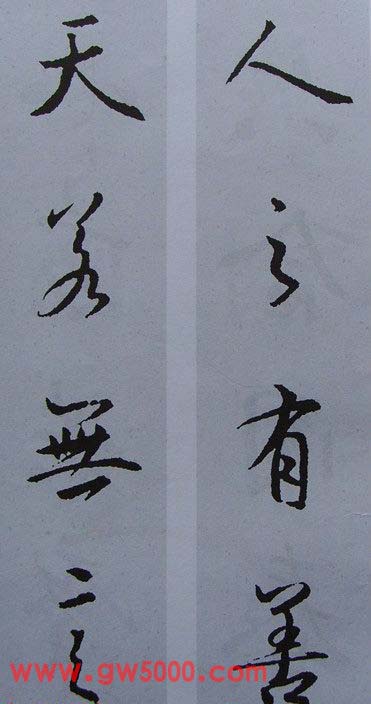 人之有善
天若無言
www.gw5000.com